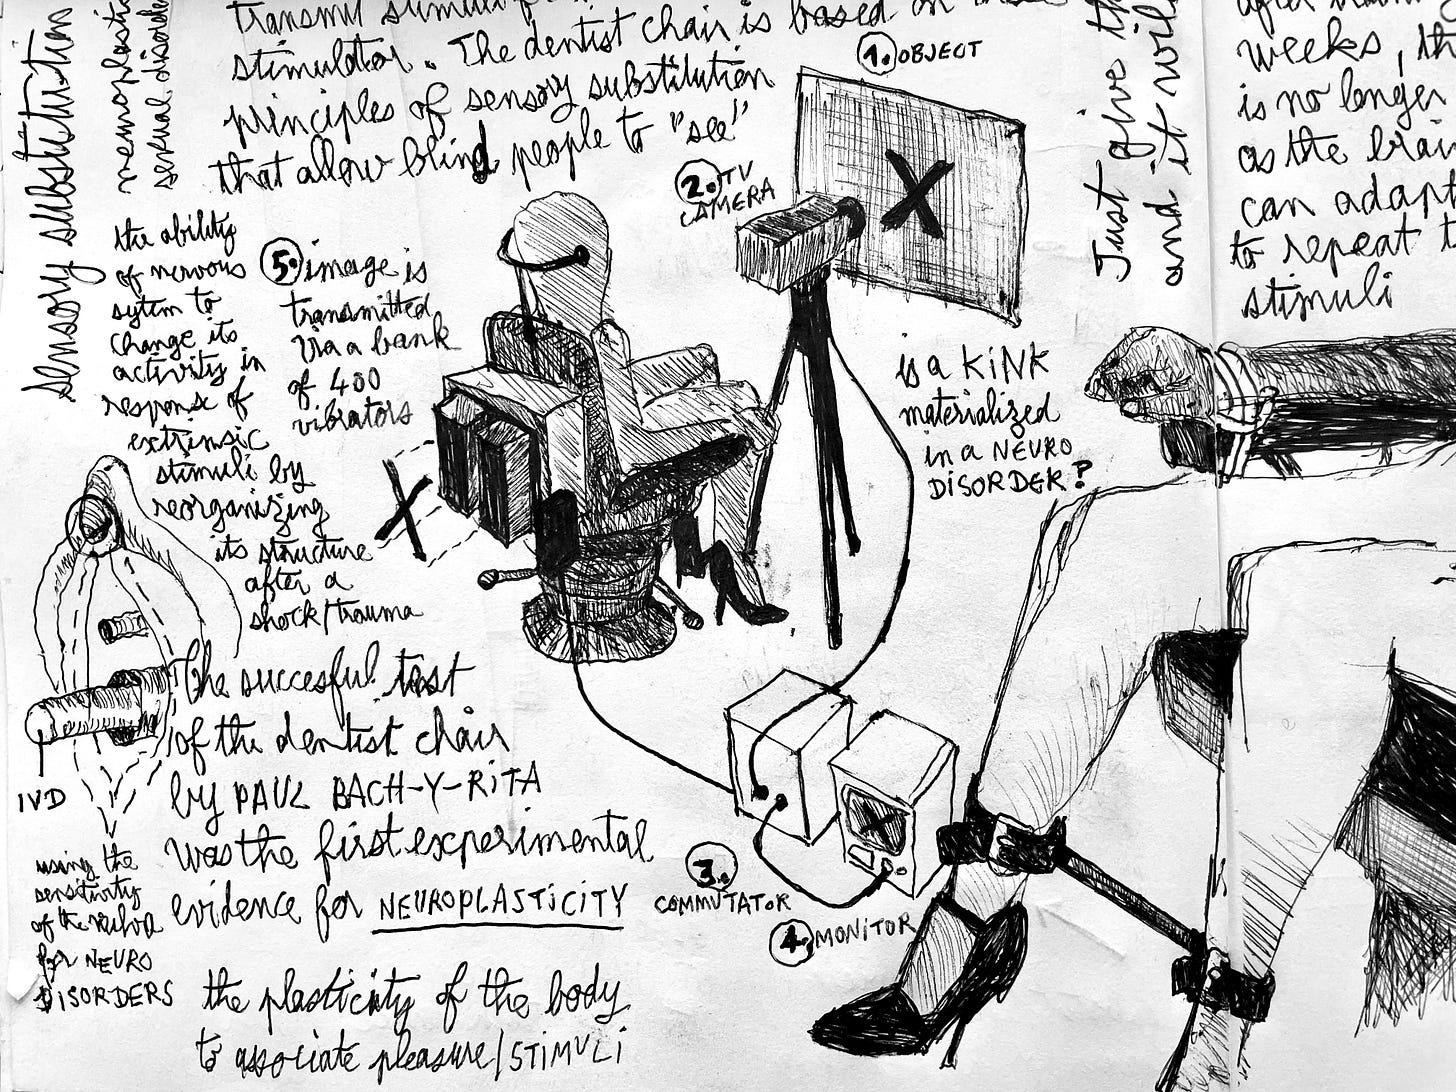 sensory substitution
neuroplastic
sexual disorde
transmit stimuli
stimulator. The dentist chair is based on
principles of sensory substitution
that allow blind people to "see"
the ability
of nervous
sytem to
change its
activity in
response of
extrinsic
stimuli by
reorganizing
its structure
after a
shock/trauma
5. image is
transmitted
via a bank
of 400
vibrators
X
1. OBJECT
X
2. TV
CAMERA
is a KINK
materialized
in a NEURO
DISORDER?
Just give th
and it will
after
weeks, th
is no longer
as the brai
can adapt
to repeat t
stimuli
The succesful test
of the dentist chair
by PAUL BACH-Y-RITA
was the first experimental
evidence for NEUROPLASTICITY
IVD
using the
sensitivity
of the vulva
for NEURO
DISORDERS
X
3.
COMMUTATOR
4. MONITOR
the plasticity of the body
to associate pleasure/STIMULI